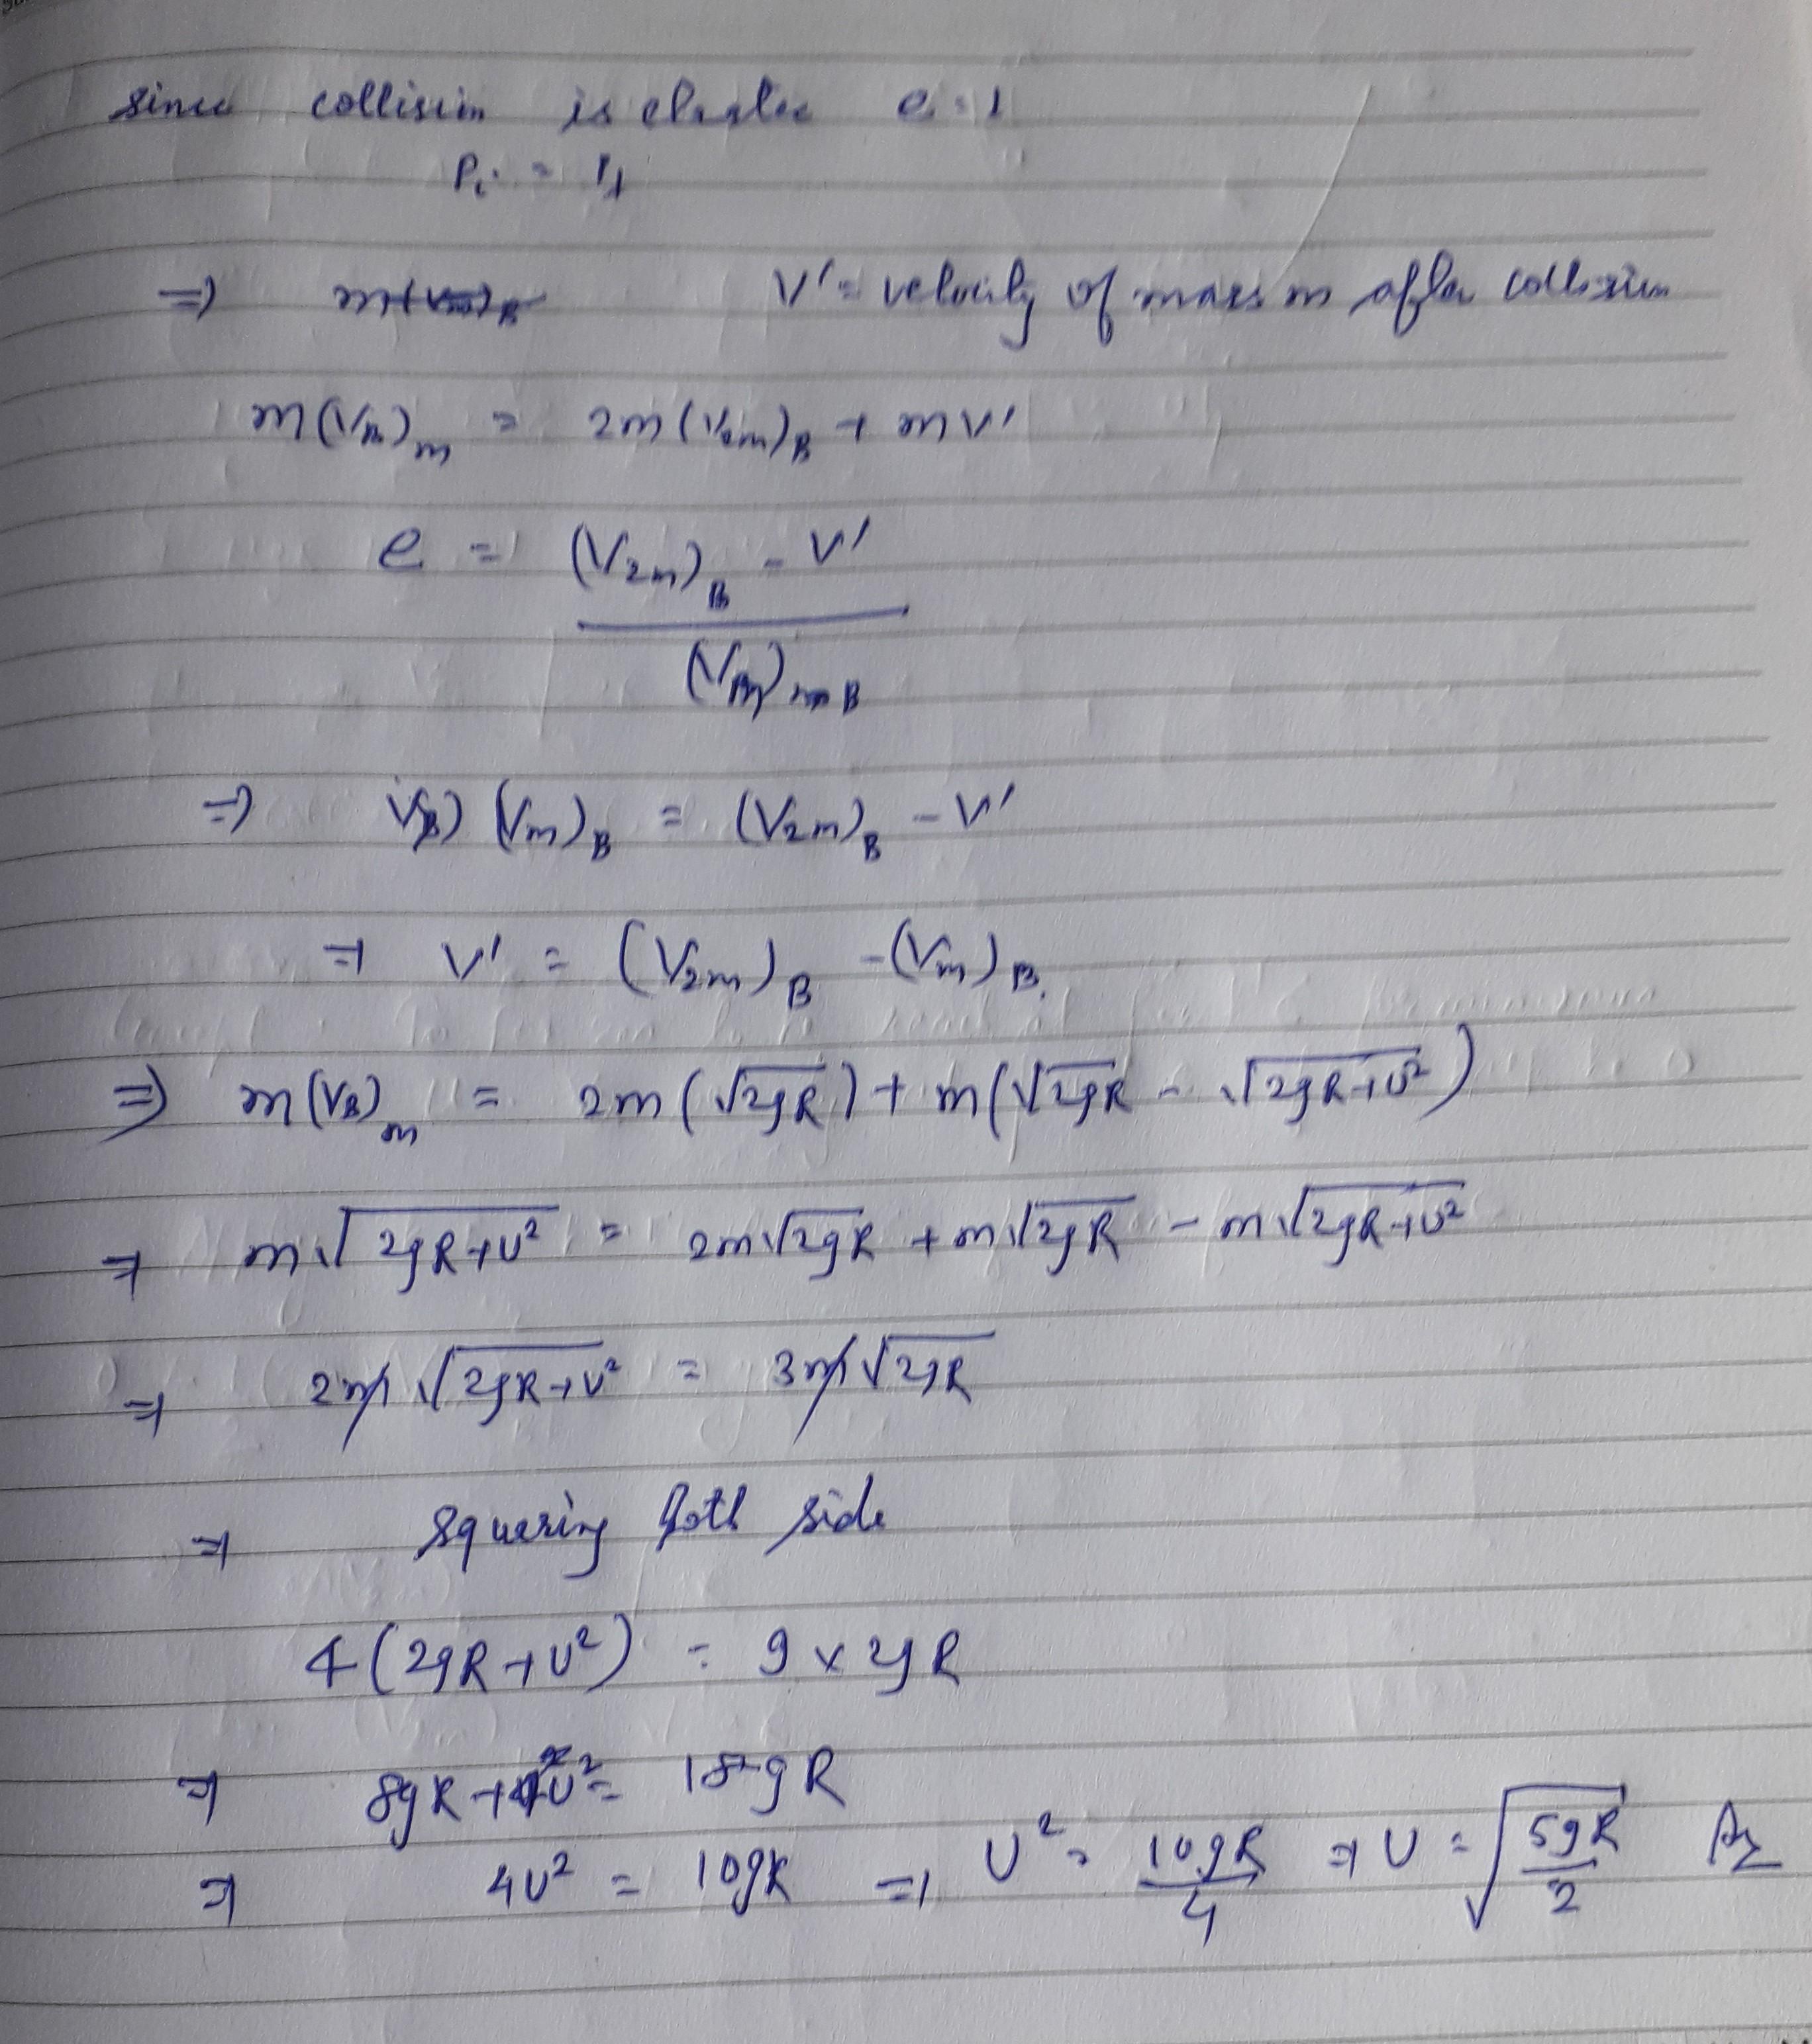 since collision is elastic e = 1
Pi = Pf
⇒ m(Vm)B V' = velocity of mass m after collision
m(VB)m = 2m(V2m)B + mV'
e = (V2m)B - V'
(Vm)mB
⇒ (Vm)B = (V2m)B - V'
⇒ V' = (V2m)B - (Vm)B.
⇒ m(VB)m = 2m(√2gR) + m(√2gR - √2gR+U²)
⇒ m√2gR+U² = 2m√2gR + m√2gR - m√2gR+U²
⇒ 2m√2gR+U² = 3m√2gR
⇒ squaring both side
4(2gR+U²) = 9 x 2gR
⇒ 8gR+4U² = 18gR
⇒ 4U² = 10gR ⇒ U² = 10gR/4 ⇒ U = √5gR/2